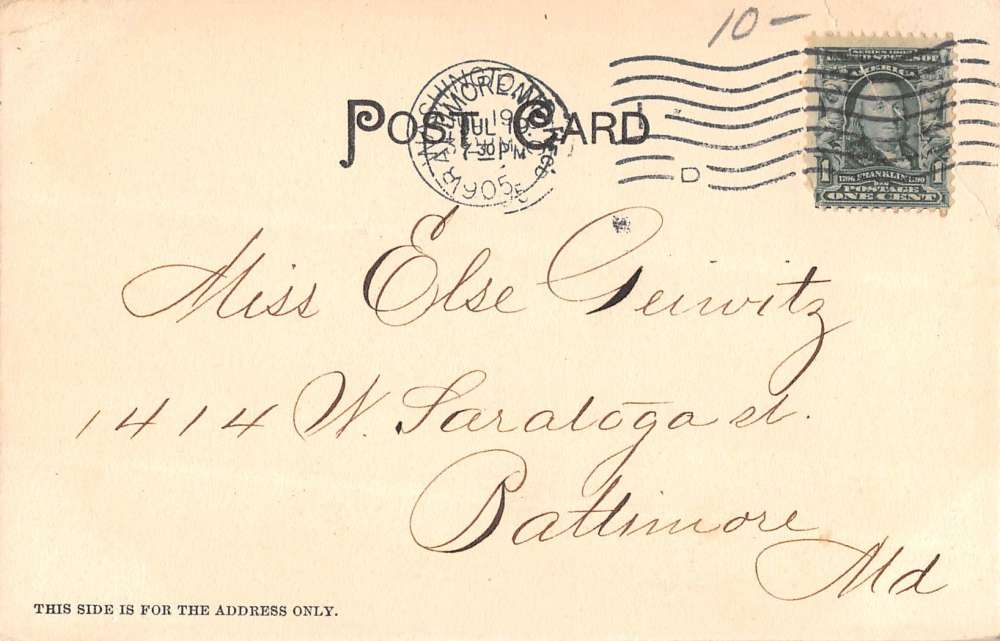 10-
SERIES 1902
UNITED STATES OF
AMERICA
POST CARD
WASHINGTON
BALTIMORE, MD.
JUL 19
7-30 PM
1905
D
1706 FRANKLIN 1790
POSTAGE
ONE CENT
Miss Else Geiwitz
1414 W. Saratoga st.
Baltimore
Md
THIS SIDE IS FOR THE ADDRESS ONLY.